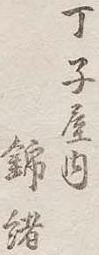 丁子屋内
錦緒